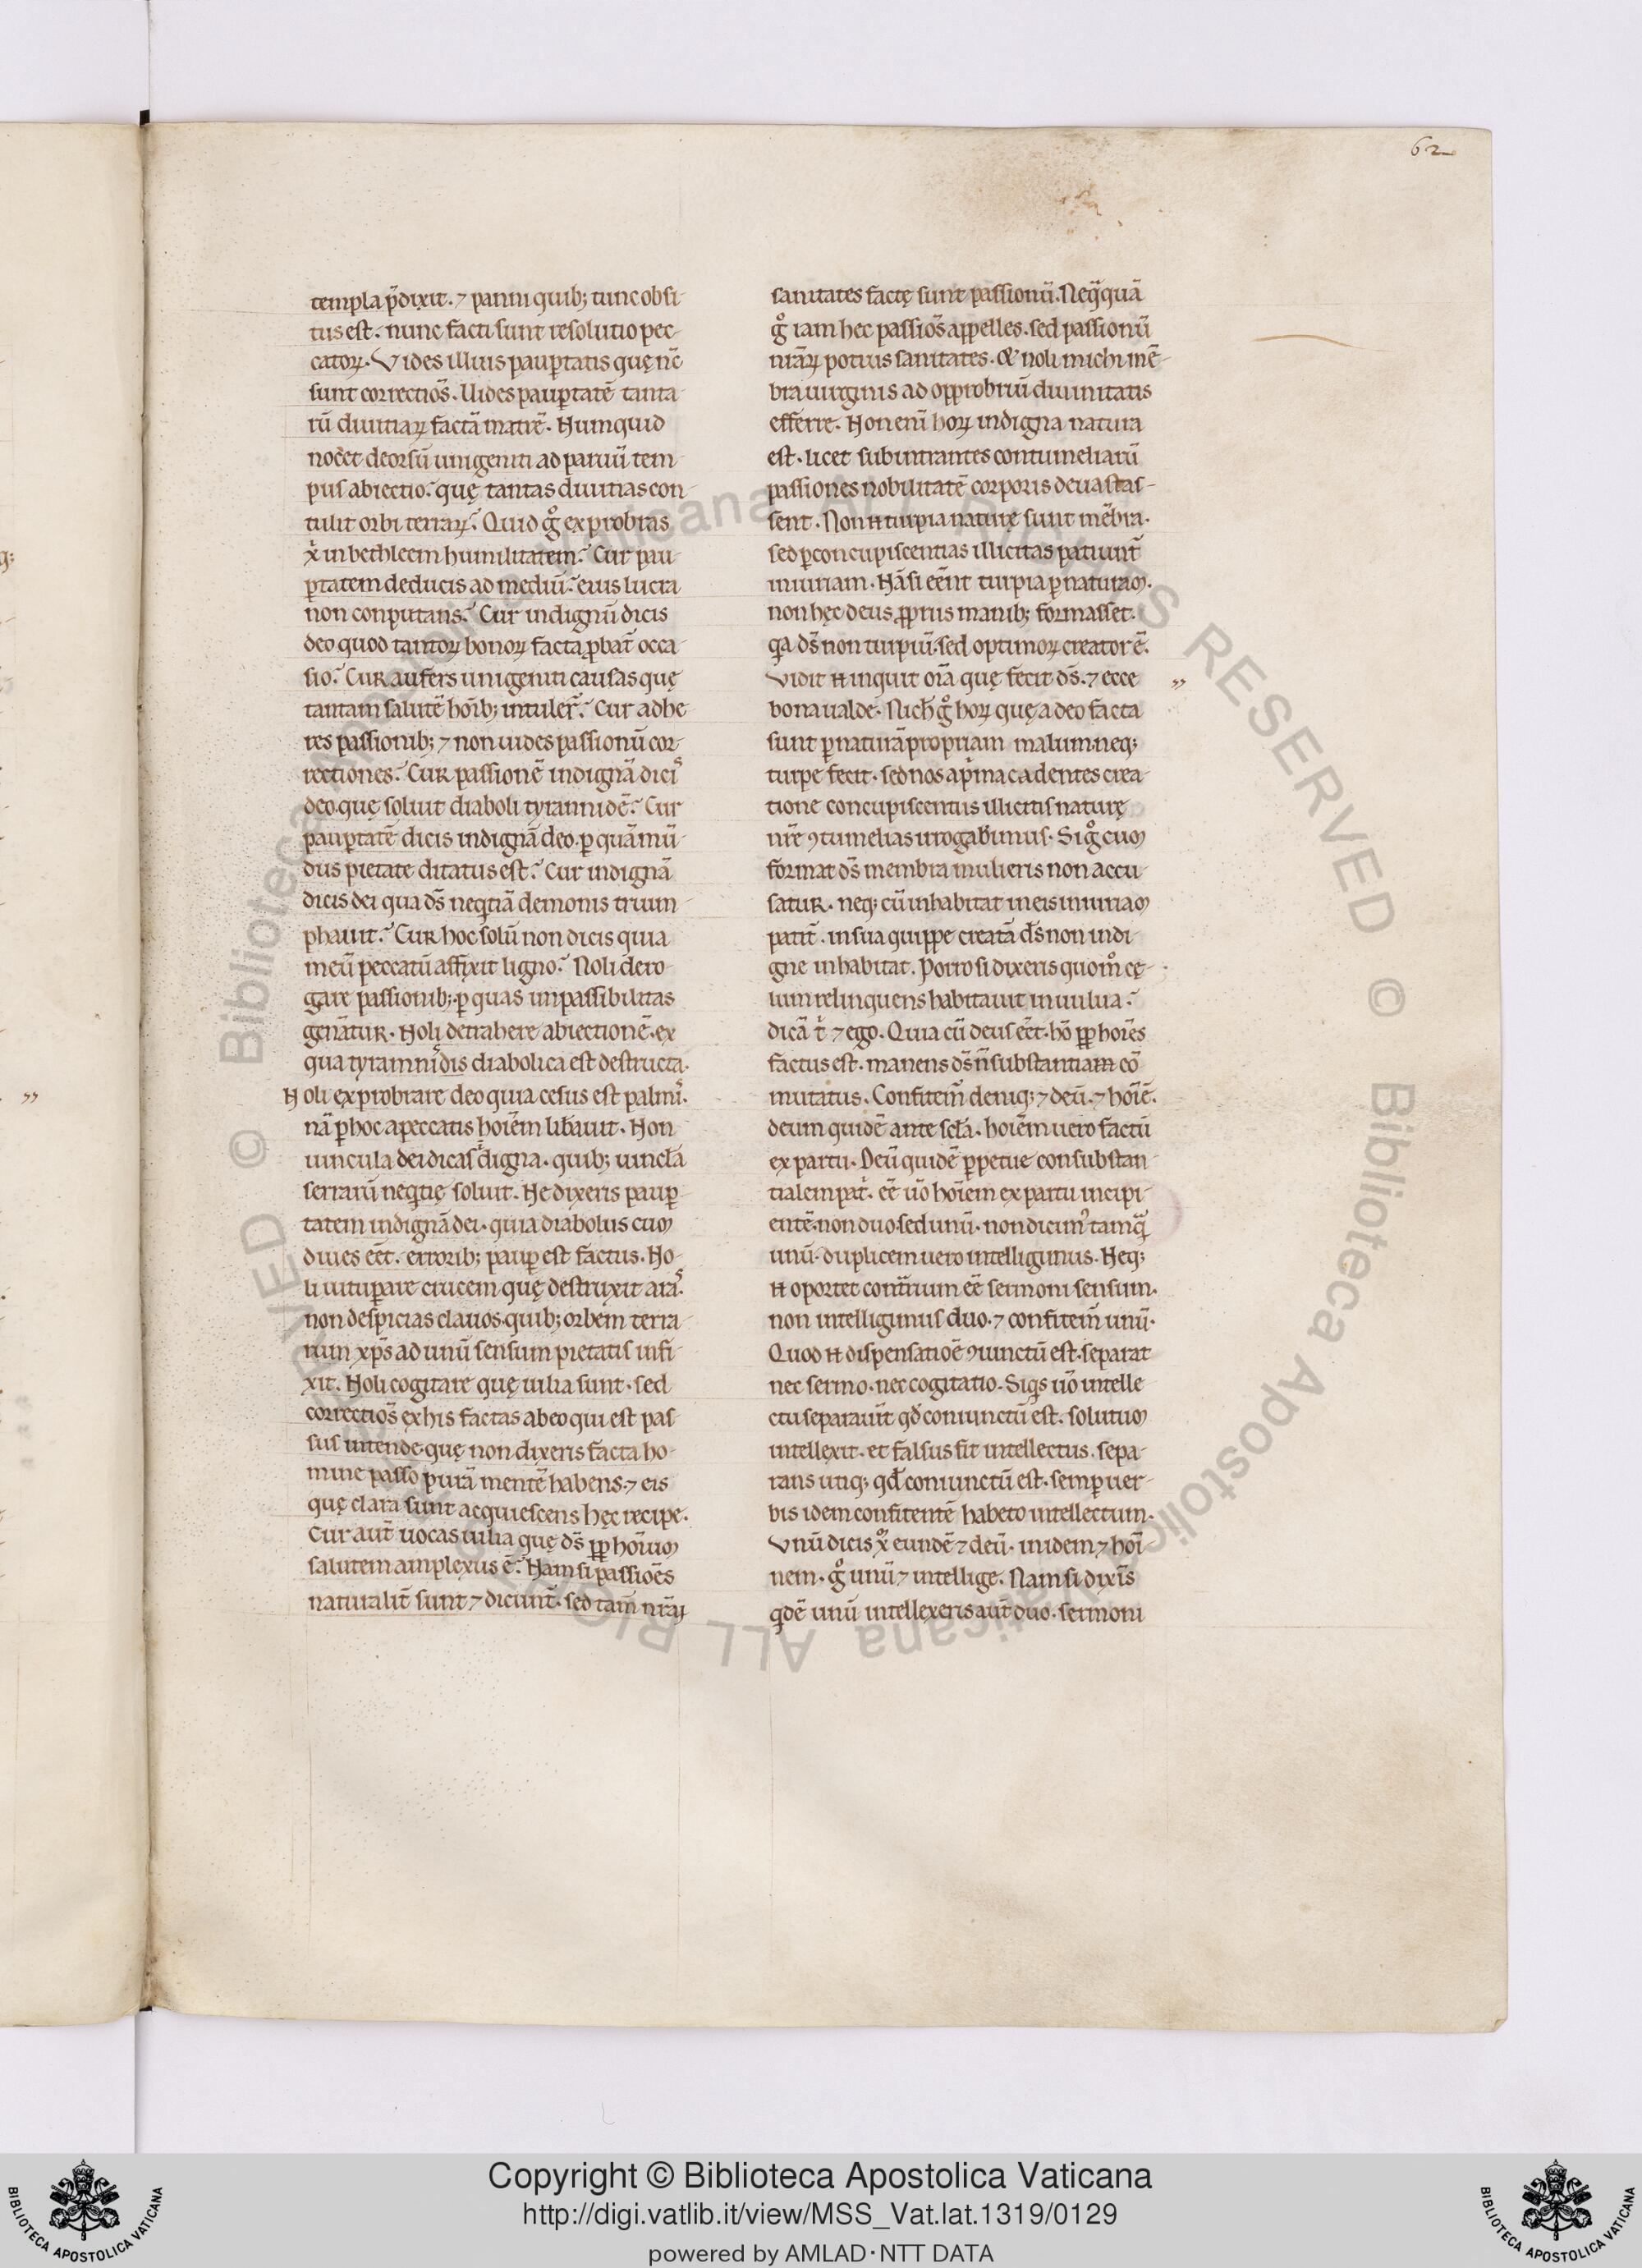 62
templa p̄dixit. ⁊ panni quib; tunc obsi-
tus est. nunc facti sunt resolutio pec-
catoꝝ. Vides illius paup̲tatis quę nc̄
sunt correctiōs. Uides paup̲tatē tanta
rū diuitiaꝝ factā matrē. Numquid
nocēt deorsū unigeniti ad paruū tem-
pus abiectio. quę tantas diuitias con-
tulit orbi terraꝝ? Quid gͦ exprobras
xͥ in bethleem humilitatem? Cur pau-
ꝑtatem deducis ad mediū? eius lucra
non conputans? Cur indignū dicis
deo quod tantoꝝ bonoꝝ facta ꝓbat̄ occa
sio? Cur aufers unigeniti causas quę
tantam salutē hoīb; intuler̄? Cur adhe
res passionib; ⁊ non uides passionū cor-
rectiones? Cur passionē indignā diciˢ
deo. quę soluit diaboli tyrannidē? Cur
pauꝑtatē dicis indignā deo. ꝑ quā mū-
dus pietate ditatus est? Cur indignā
dicis dei qua ds̄ neqͥtiā demonis trium-
phauit? Cur hoc solū non dicis quia
meū peccatū affixit ligno? Noli dero-
gare passionib; ꝑ quas impassibilitas
genāt̄ur. Noli detrahere abiectionē. ex
qua tyrannidis diabolica est destructa.
Noli exprobrare deo quia cesus est palmiˢ.
nā ꝑ hoc a peccatis hoiēm lib̄auit. Non
uincula dei dicas īdigna. quib; uincl̄a
serrarū neqͥtię soluit. Ne dixeris pauꝑ-
tatem indignā dei. quia diabolus cum
diues eēt. errorib; pauꝑ est factus. No-
li uituꝑare crucem quę destruxit araˢ.
non despicias clauos. quib; orbem terra-
rum xp̄s ad unū sensum pietatis infi-
xit. Noli cogitare quę uilia sunt. sed
correctiōs ex his factas ab eo qui est pas-
sus intende quę non dixeris facta ho-
mine passo purā mentē habens. ⁊ eis
quę clara sunt acquiescens hęc recipe.
Cur aut̄ uocas uilia quę ds̄ ꝓp̄ hoīum
salutem amplexus ē? Nam si passioēs
naturalit̄ sunt ⁊ dicunt̄. sed tam̄ nrāꝝ
sanitates factę sunt passionū. Neqͣquā
gͦ iam hec passiōs appelles. sed passionū
nrāꝝ potius sanitates. & noli michi mē-
bra uirginis ad opprobriū diuinitatis
efferre. Non enī hoꝝ indigna natura
est. licet subintrantes contumeliarū
passiones nobilitatē corporis deuastas-
sent. Non n̄ turpia naturę sunt mēbra.
sed ꝑ concupiscentias illicitas patiunt̄
iniuriam. Nā si eēnt turpia ꝑ naturam.
non hęc deus ꝓpriis manib; formasset.
qͥa ds̄ non turpiū. sed optimoꝝ creator ē.
Vidit n̄ inquit oīa quę fecit ds̄. ⁊ ecce
bona ualde. Nich̄ gͦ hoꝝ quę a deo facta
sunt ꝑ naturā propriam malum. neq;
turpe fecit. sed nos a pͥma cadentes crea-
tione concupiscentiis illicitis naturę
nrē ꝯtumelias irrogabimus. Si gͦ cum
format ds̄ membra mulieris non accu-
satur. neq; cū inhabitat in eis iniuriam
patit̄. in sua quippe creat̄a ds̄ non indi-
gne inhabitat. Porro si dixeris quomͦ cę-
lum relinquens habitauit in uulua?
dicā tͥ ⁊ ego. Quia cū deus eēt. hō ꝓp̄ hoīes
factus est. manens ds̄ n̄ substantiam cō
mutatus. Confitem̄ deniq; ⁊ deū. ⁊ hoīē.
deum quidē ante sc̄la. hoiēm uero factū
ex partu. Deū quidē ꝑpetue consubstan-
tialem patͥ. eē uō hoīem ex partu incipi-
entē. non duo. sed unū. non dicim̉ tamqͣ
unū. duplicem uero intelligimus. Neq;
n̄ oportet contͣrium eē sermoni sensum.
non intelligimus duo. ⁊ confitem̄ unū.
Quod n̄ dispensatioē ꝯiunctū est. separat
nec sermo. nec cogitatio. Si qͥs uō intelle
ctu separauīt qd̄ coniunctū est. solutum
intellexit. et falsus fit intellectus. sepa-
rans utiq; qd̄ coniunctū est. semꝑ uer-
bis idem confitentē habeto intellectum.
Vnū dicis xͥ eundē ⁊ deū. itidem ⁊ hoī
nem. gͦ unū ⁊ intellige. Nam si dixīs
qͥdē unū intellexeris aut̄ duo. sermoni
Copyright © Biblioteca Apostolica Vaticana
http://digi.vatlib.it/view/MSS_Vat.lat.1319/0129
powered by AMLAD·NTT DATA
BIBLIOTECA APOSTOLICA VATICANA
BIBLIOTECA APOSTOLICA VATICANA